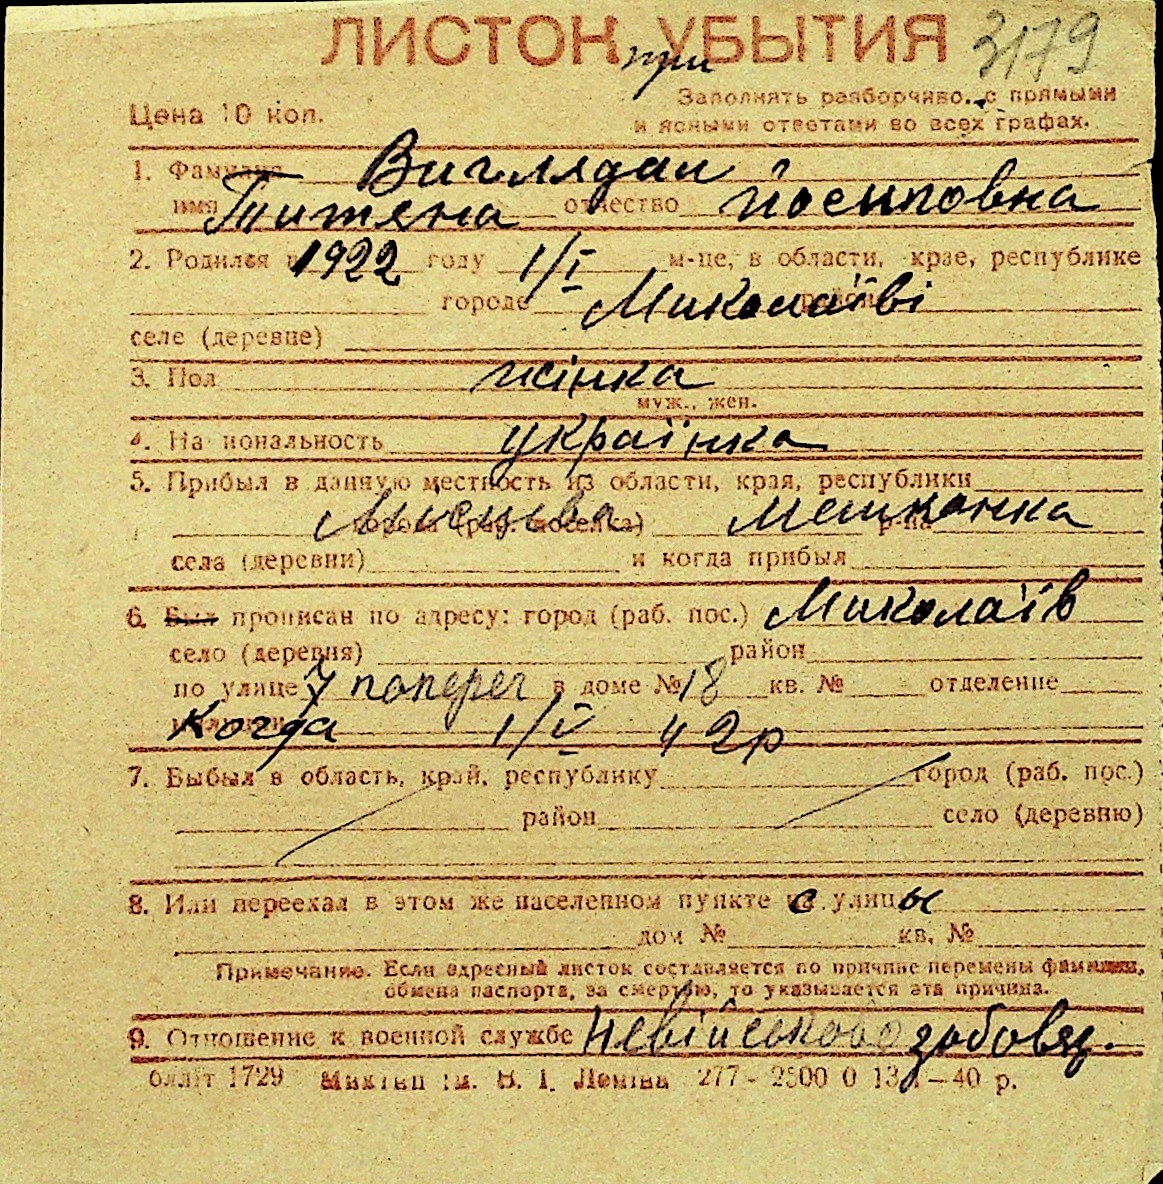 ЛИСТОК УБЫТИЯ 3179
при
Цена 10 коп.
Заполнять разборчиво, с прямыми
и ясными ответами во всех графах.
1. Фамилия Виглядаш
имя Титяна отчество Йосиповна
2. Родился в 1922 году 1/I м-це, в области, крае, республике
городе Миколаїві
селе (деревне)
3. Пол жінка
муж., жен.
4. Национальность українка
5. Прибыл в данную местность из области, края, республики
города (раб. поселка) Місцева р-на мешканка
села (деревни) и когда прибыл
6. Был прописан по адресу: город (раб. пос.) Миколаїв
село (деревня) район
по улице 7 поперег в доме № 18 кв. № отделение
милиции Когда 1/V 42р
7. Выбыл в область, край, республику город (раб. пос.)
район село (деревню)
8. Или переехал в этом же населенном пункте с улицы
дом № кв. №
Примечание. Если адресный листок составляется по причине перемены фамилии,
обмена паспорта, за смертью, то указывается эта причина.
9. Отношение к военной службе Невійськовозобовяз.
блліт 1729 ім. В. І. Леніна 277 - 2500 0 13 – 40 р.